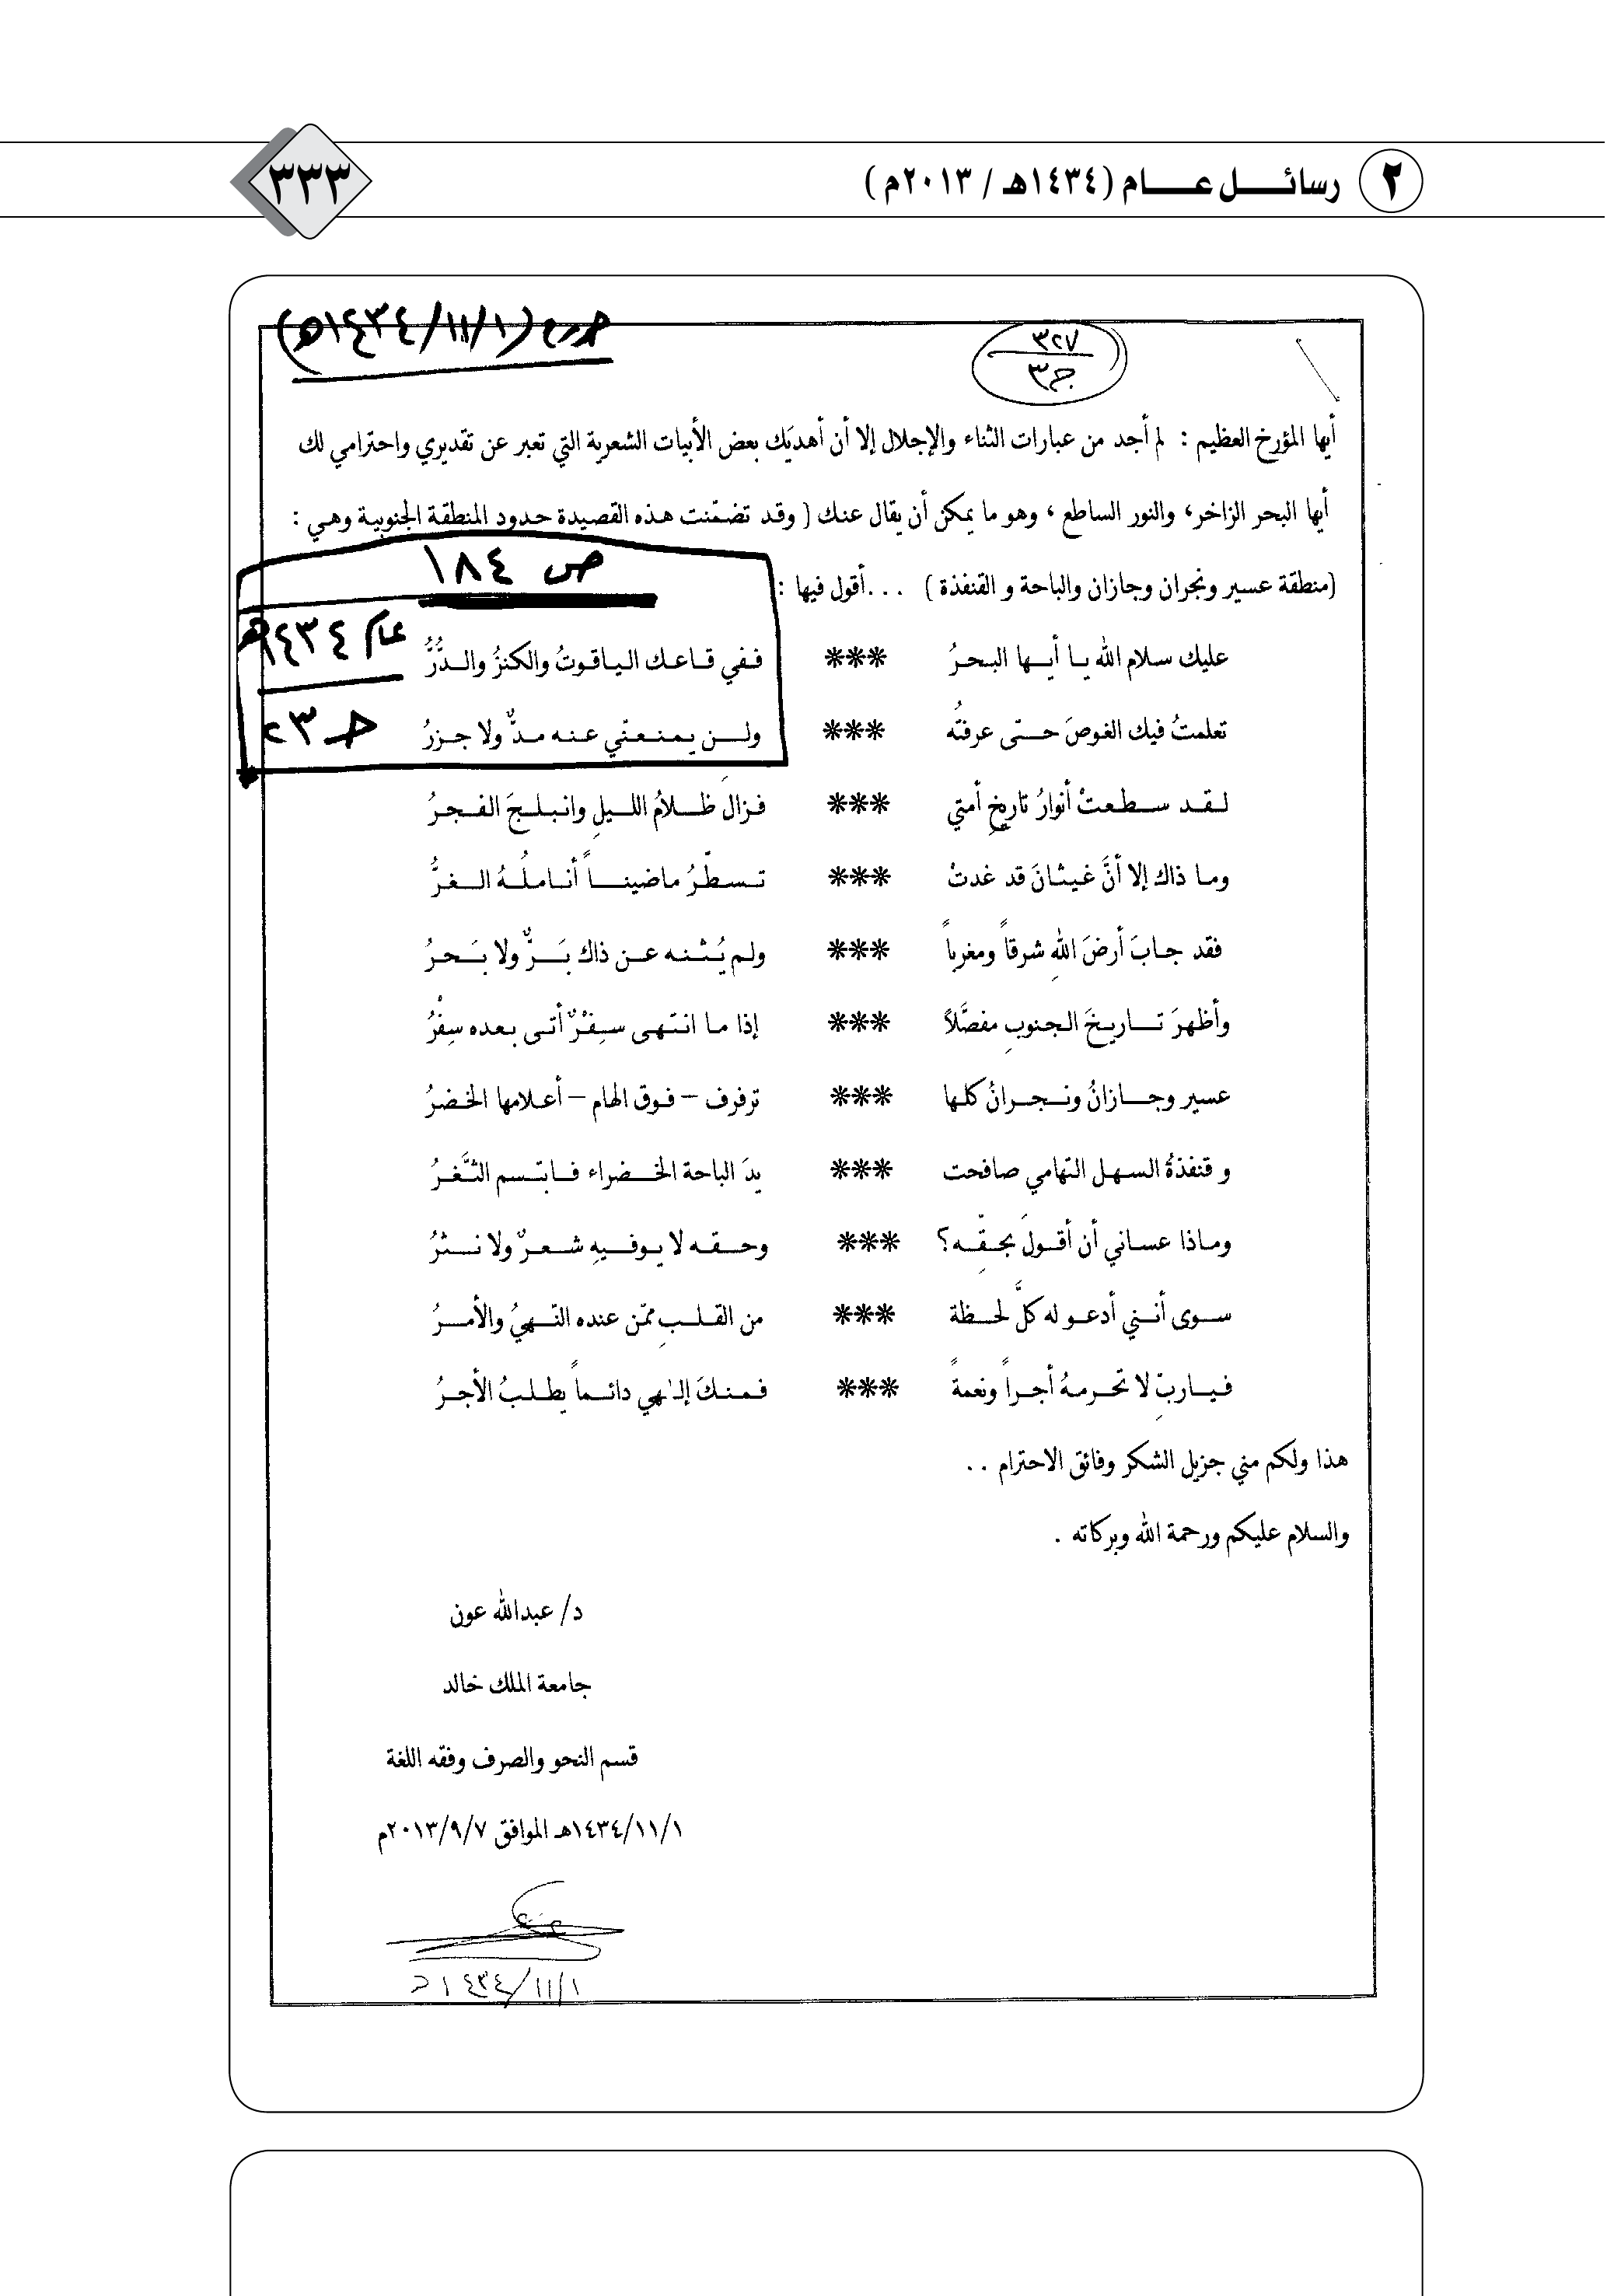 ٢ رسائل عام (١٤٣٤هـ / ٢٠١٣م)
٣٣٣
(١/١١/١٤٣٤هـ)
٣٢٧
ج٣
أيها المؤرخ العظيم : لم أجد من عبارات الثناء والإجلال إلا أن أهديَك بعض الأبيات الشعرية التي تعبر عن تقديري واحترامي لك
أيها البحر الزاخر، والنور الساطع ، وهو ما يمكن أن يقال عنك ( وقد تضمّنت هذه القصيدة حدود المنطقة الجنوبية وهي :
(منطقة عسير ونجران وجازان والباحة و القنفذة ) ...أقول فيها :
ص ١٨٤
عام ١٤٣٤هـ
عليك سلام الله يا أيها البحرُ *** ففي قاعك الياقوتُ والكنزُ والدُّرُّ
تعلمتُ فيك الغوصَ حتّى عرفتُه *** ولن يمنعنّي عنه مدٌّ ولا جزرُ
لقد سطعتْ أنوارُ تاريخِ أمتي *** فزالَ ظلامُ الليلِ وانبلجَ الفجرُ
وما ذاك إلا أنَّ غيثانَ قد غدتْ *** تسطّرُ ماضيناً أناملُهُ الغرُّ
فقد جابَ أرضَ اللهِ شرقاً ومغرباً *** ولم يُثنه عن ذاك بَرٌّ ولا بَحرُ
وأظهرَ تاريخَ الجنوبِ مفصَّلاً *** إذا ما انتهى سِفْرٌ أتى بعده سِفْرُ
عسير وجازانُ ونجرانُ كلها *** ترفرف – فوق الهام – أعلامها الخضرُ
و قنفذةُ السهل التهامي صافحت *** يدَ الباحة الخضراء فابتسم الثَّغرُ
وماذا عساني أن أقولَ بحقِّه؟ *** وحقه لا يوفيهِ شعرٌ ولا نثرُ
سوى أنني أدعو له كلَّ لحظة *** من القلبِ ممّن عنده النّهيُ والأمرُ
فياربِّ لا تحرمهُ أجراً ونعمةً *** فمنكَ إلٰهي دائماً يطلبُ الأجرُ
هذا ولكم مني جزيل الشكر وفائق الاحترام ..
والسلام عليكم ورحمة الله وبركاته .
د/ عبدالله عون
جامعة الملك خالد
قسم النحو والصرف وفقه اللغة
١٤٣٤/١١/١هـ الموافق ٢٠١٣/٩/٧م
١/١١/١٤٣٤